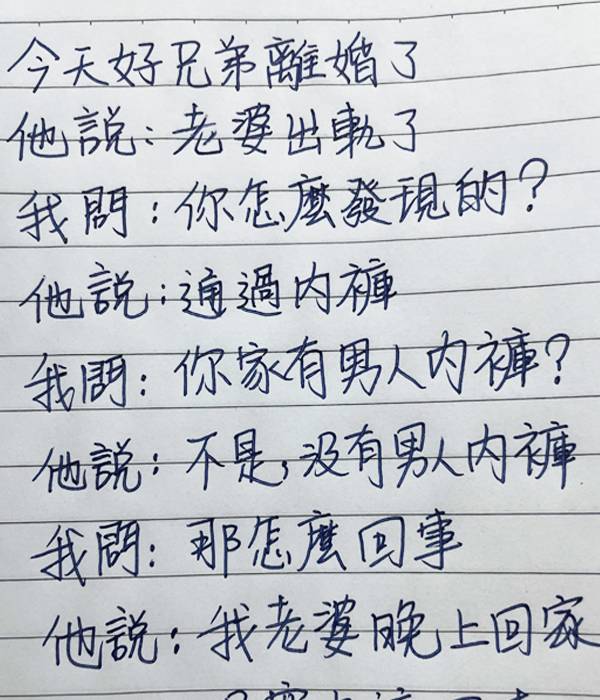 今天好兄弟離婚了
他說：老婆出軌了
我問：你怎麼發現的？
他說：通過內褲
我問：你家有男人內褲？
他說：不是，沒有男人內褲
我問：那怎麼回事
他說：我老婆晚上回家